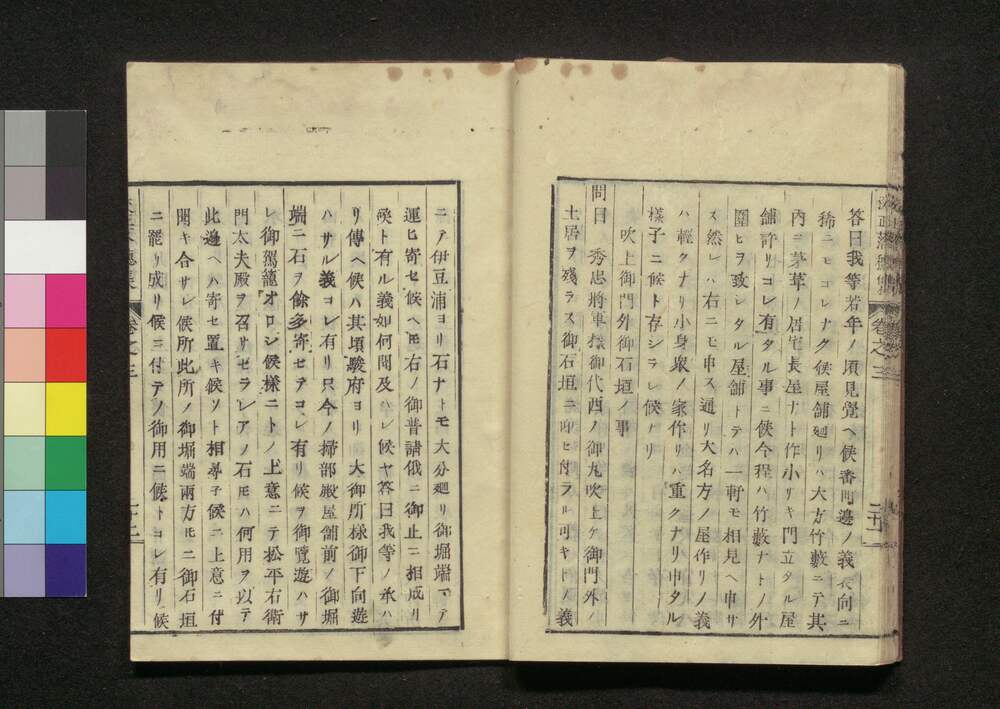 答曰我等若年ノ頃見覺ヘ候番町邊ノ義表向ニ
稀ニモコレナク候屋舗廻リハ大方竹藪ニテ其
内ニ茅葺ノ居宅長屋ナト作小リキ門立タル屋
舗許リコレ有タル事ニ候今程ハ竹藪ナトノ外
圍ヒヲ致シタル屋舗トテハ一軒モ相見ヘ申サ
ス然レハ右ニモ申ス通リ大名方ノ屋作リノ義
ハ輕クナリ小身衆ノ家作リハ重クナリ申タル
樣子ニ候ト存シラレ候ナリ
吹上御門外御石垣ノ事
問曰 秀忠將軍樣御代西ノ御丸吹上ケ御門外ノ
土居ヲ殘ラス御石垣ニ仰セ付ラル可キトノ義
ニテ伊豆浦ヨリ石ナトモ大分廻リ御堀端マテ
運ヒ寄セ候ヘモ右ノ御普請俄ニ御止ニ相成リ
候ト有ル義如何聞及ハレ候ヤ答曰我等ノ承ハ
リ傳ヘ候ハ其頃駿府ヨリ 大御所樣御下向遊
ハサル義コレ有リ只今ノ掃部殿屋舗前ノ御堀
端ニ石ヲ餘多寄セテコレ有リ候ヲ御覽遊ハサ
レ御駕籠オロシ候樣ニトノ上意ニテ松平右衛
門太夫殿ヲ召サセラレアノ石モハ何用ヲ以テ
此邊ヘハ寄セ置キ候ソト相尋子候ニ上意ニ付
聞キ合サレ候所此所ノ御堀端兩方モニ御石垣
ニ罷リ成リ候ニ付テノ御用ニ候トコレ有リ候
卷之三
卷之三